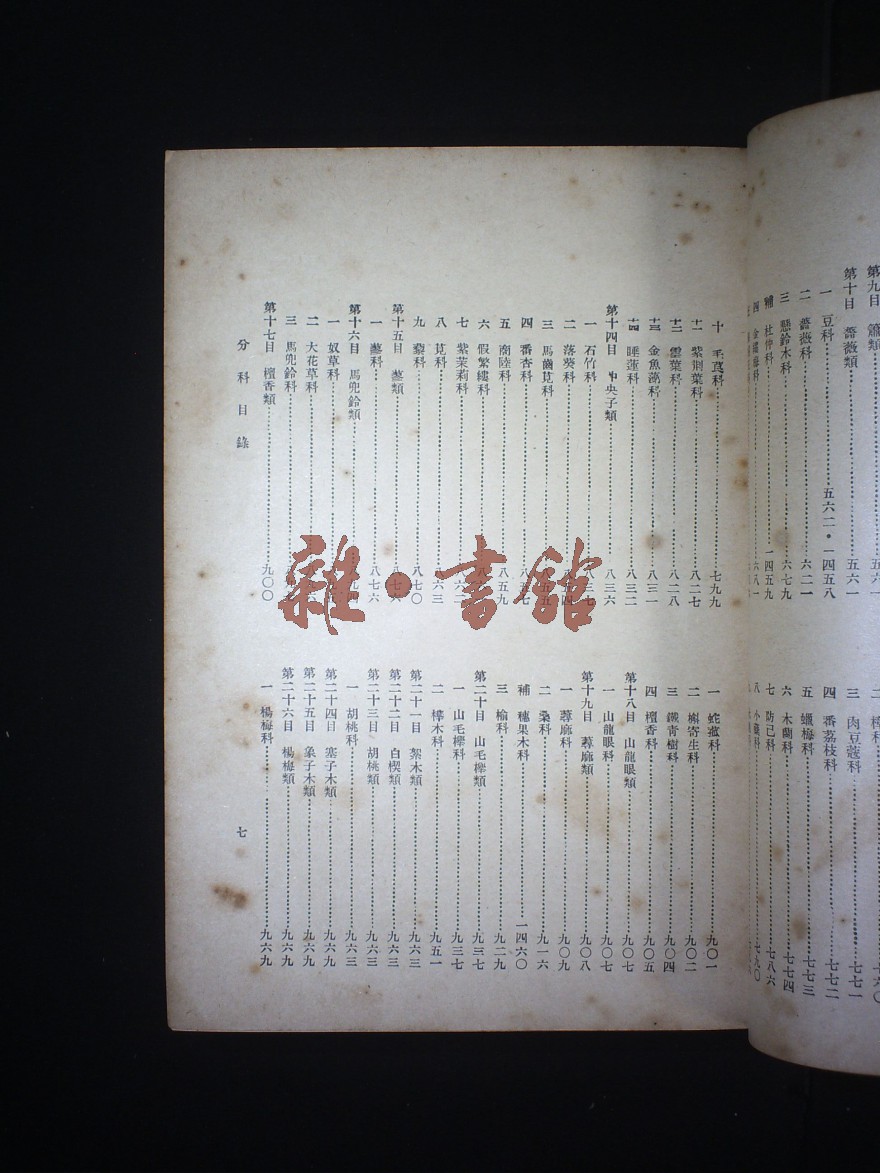 第十目 薔薇類 五六一
一 豆科 五六二・一四五八
二 薔薇科 六二一
三 懸鈴木科 六七九
補 杜仲科 一四五九
四 金縷梅科 六八一
三 肉豆蔻科 七七一
四 番荔枝科 七七二
五 蠟梅科 七七三
六 木蘭科 七七四
七 防己科 七八六
八 小蘗科 七九〇
十 毛茛科 七九九
十一 紫荆葉科 八二七
十二 雲葉科 八二八
十三 金魚藻科 八三一
十四 睡蓮科 八三二
第十四目 中央子類 八三六
一 石竹科 八三七
二 落葵科
三 馬齒莧科
四 番杏科 八五七
五 商陸科 八五九
六 假繁縷科
七 紫茉莉科
八 莧科 八六三
九 藜科 八七〇
第十五目 蓼類 八七六
一 蓼科 八七六
第十六目 馬兜鈴類
一 奴草科
二 大花草科
三 馬兜鈴科
第十七目 檀香類 九〇〇
一 蛇菰科 九〇一
二 槲寄生科 九〇二
三 鐵青樹科 九〇四
四 檀香科 九〇五
第十八目 山龍眼類 九〇七
一 山龍眼科 九〇七
第十九目 蕁麻類 九〇八
一 蕁麻科 九〇九
二 桑科 九一六
補 穗果木科 一四六〇
三 榆科 九二九
第二十目 山毛櫸類 九三七
一 山毛櫸科 九三七
二 樺木科 九五一
第二十一目 絮木類 九六三
第二十二目 白楔類 九六三
第二十三目 胡桃類 九六三
一 胡桃科 九六三
第二十四目 塞子木類 九六九
第二十五目 象子木類 九六九
第二十六目 楊梅類 九六九
一 楊梅科 九六九
分科目錄
七
雜・書館